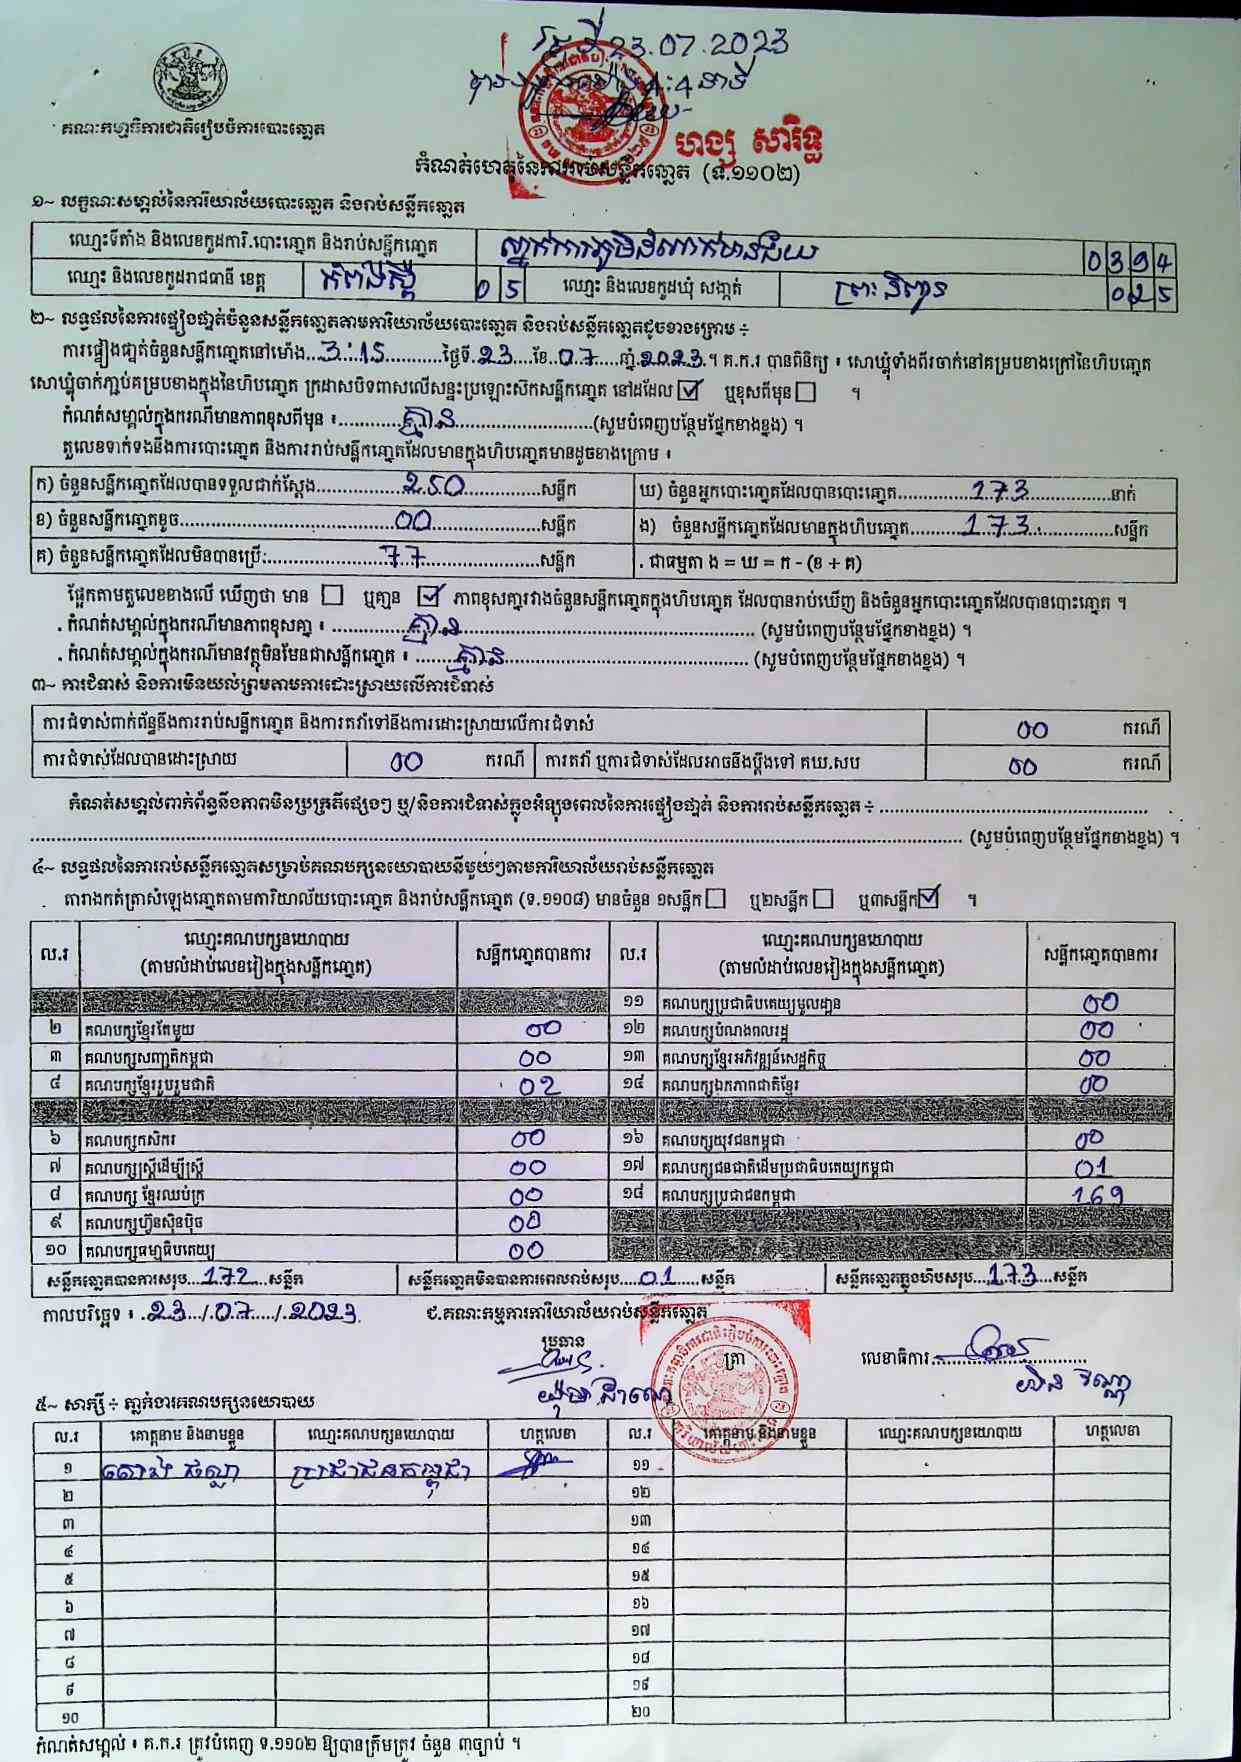 ថ្ងៃទី 23.07.2023
4:4 នាទី
គណៈកម្មាធិការជាតិរៀបចំការបោះឆ្នោត
ហង្ស សារិទ្ធ
កំណត់ហេតុនៃការរាប់សន្លឹកឆ្នោត (ទ.១១០២)
១~ លក្ខណៈសម្គាល់នៃការិយាល័យបោះឆ្នោត និងរាប់សន្លឹកឆ្នោត
ឈ្មោះទីតាំង និងលេខកូដការិ.បោះឆ្នោត និងរាប់សន្លឹកឆ្នោត 0394
ឈ្មោះ និងលេខកូដរាជធានី ខេត្ត កំពង់ស្ពឺ 05 ឈ្មោះ និងលេខកូដឃុំ សង្កាត់ ព្រះនិព្វាន 025
២~ លទ្ធផលនៃការផ្ទៀងផ្ទាត់ចំនួនសន្លឹកឆ្នោតតាមការិយាល័យបោះឆ្នោត និងរាប់សន្លឹកឆ្នោតដូចខាងក្រោម ÷
ការផ្ទៀងផ្ទាត់ចំនួនសន្លឹកឆ្នោតនៅម៉ោង 3:15 ថ្ងៃទី 23 ខែ 07 ឆ្នាំ 2023 ។ គ.ក.រ បានពិនិត្យ ៖ សោឃ្លុំទាំងពីរចាក់នៅគម្របខាងក្រៅនៃហិបឆ្នោត
សោឃ្លុំចាក់ភ្ជាប់គម្របខាងក្នុងនៃហិបឆ្នោត ក្រដាសបិទពាសលើសន្ទះប្រឡោះស៊កសន្លឹកឆ្នោត នៅដដែល ☑ ឬខុសពីមុន ☐ ។
កំណត់សម្គាល់ក្នុងករណីមានភាពខុសពីមុន ៖ គ្មាន (សូមបំពេញបន្ថែមផ្នែកខាងខ្នង) ។
តួលេខទាក់ទងនឹងការបោះឆ្នោត និងការរាប់សន្លឹកឆ្នោតដែលមានក្នុងហិបឆ្នោតមានដូចខាងក្រោម ៖
ក) ចំនួនសន្លឹកឆ្នោតដែលបានទទួលជាក់ស្តែង 250 សន្លឹក ឃ) ចំនួនអ្នកបោះឆ្នោតដែលបានបោះឆ្នោត 173 នាក់
ខ) ចំនួនសន្លឹកឆ្នោតខូច 00 សន្លឹក ង) ចំនួនសន្លឹកឆ្នោតដែលមានក្នុងហិបឆ្នោត 173 សន្លឹក
គ) ចំនួនសន្លឹកឆ្នោតដែលមិនបានប្រើ: 77 សន្លឹក . ជាធម្មតា ង = ឃ = ក - (ខ + គ)
ផ្អែកតាមតួលេខខាងលើ ឃើញថា មាន ☐ ឬគ្មាន ☑ ភាពខុសគ្នារវាងចំនួនសន្លឹកឆ្នោតក្នុងហិបឆ្នោត ដែលបានរាប់ឃើញ និងចំនួនអ្នកបោះឆ្នោតដែលបានបោះឆ្នោត ។
. កំណត់សម្គាល់ក្នុងករណីមានភាពខុសគ្នា ៖ គ្មាន (សូមបំពេញបន្ថែមផ្នែកខាងខ្នង) ។
. កំណត់សម្គាល់ក្នុងករណីមានវត្ថុមិនមែនជាសន្លឹកឆ្នោត ៖ គ្មាន (សូមបំពេញបន្ថែមផ្នែកខាងខ្នង) ។
៣~ ការជំទាស់ និងការមិនយល់ព្រមតាមការដោះស្រាយលើការជំទាស់
ការជំទាស់ពាក់ព័ន្ធនឹងការរាប់សន្លឹកឆ្នោត និងការតវ៉ាទៅនឹងការដោះស្រាយលើការជំទាស់ 00 ករណី
ការជំទាស់ដែលបានដោះស្រាយ 00 ករណី ការតវ៉ា ឬការជំទាស់ដែលអាចនឹងប្តឹងទៅ គឃ.សប 00 ករណី
កំណត់សម្គាល់ពាក់ព័ន្ធនឹងភាពមិនប្រក្រតីផ្សេងៗ ឬ/និងការជំទាស់ក្នុងអំឡុងពេលនៃការផ្ទៀងផ្ទាត់ និងការរាប់សន្លឹកឆ្នោត ÷
(សូមបំពេញបន្ថែមផ្នែកខាងខ្នង) ។
៤~ លទ្ធផលនៃការរាប់សន្លឹកឆ្នោតសម្រាប់គណបក្សនយោបាយនីមួយៗតាមការិយាល័យរាប់សន្លឹកឆ្នោត
តារាងកត់ត្រាសំឡេងឆ្នោតតាមការិយាល័យបោះឆ្នោត និងរាប់សន្លឹកឆ្នោត (ទ.១១០៨) មានចំនួន ១សន្លឹក ☐ ឬ២សន្លឹក ☐ ឬ៣សន្លឹក ☑ ។
ល.រ ឈ្មោះគណបក្សនយោបាយ សន្លឹកឆ្នោតបានការ ល.រ ឈ្មោះគណបក្សនយោបាយ សន្លឹកឆ្នោតបានការ
(តាមលំដាប់លេខរៀងក្នុងសន្លឹកឆ្នោត) (តាមលំដាប់លេខរៀងក្នុងសន្លឹកឆ្នោត)
១១ គណបក្សប្រជាធិបតេយ្យមូលដ្ឋាន 00
២ គណបក្សខ្មែរតែមួយ 00 ១២ គណបក្សបំណងពលរដ្ឋ 00
៣ គណបក្សសញ្ជាតិកម្ពុជា 00 ១៣ គណបក្សខ្មែរអភិវឌ្ឍន៍សេដ្ឋកិច្ច 00
៤ គណបក្សខ្មែររួបរួមជាតិ 02 ១៤ គណបក្សឯកភាពជាតិខ្មែរ 00
៦ គណបក្សកសិករ 00 ១៦ គណបក្សយុវជនកម្ពុជា 00
៧ គណបក្សស្ត្រីដើម្បីស្ត្រី 00 ១៧ គណបក្សជនជាតិដើមប្រជាធិបតេយ្យកម្ពុជា 01
៨ គណបក្ស ខ្មែរឈប់ក្រ 00 ១៨ គណបក្សប្រជាជនកម្ពុជា 169
៩ គណបក្សហ្វ៊ុនស៊ិនប៉ិច 00
១០ គណបក្សធម្មាធិបតេយ្យ 00
សន្លឹកឆ្នោតបានការសរុប 172 សន្លឹក សន្លឹកឆ្នោតមិនបានការពេលរាប់សរុប 01 សន្លឹក សន្លឹកឆ្នោតក្នុងហិបសរុប 173 សន្លឹក
កាលបរិច្ឆេទ ៖ 23/07/2023 ជ.គណៈកម្មការការិយាល័យរាប់សន្លឹកឆ្នោត
ប្រធាន ត្រា លេខាធិការ
៥~ សាក្សី ÷ ភ្នាក់ងារគណបក្សនយោបាយ
ល.រ គោត្តនាម និងនាមខ្លួន ឈ្មោះគណបក្សនយោបាយ ហត្ថលេខា ល.រ គោត្តនាម និងនាមខ្លួន ឈ្មោះគណបក្សនយោបាយ ហត្ថលេខា
១ ប្រជាជនកម្ពុជា ១១
២ ១២
៣ ១៣
៤ ១៤
៥ ១៥
៦ ១៦
៧ ១៧
៨ ១៨
៩ ១៩
១០ ២០
កំណត់សម្គាល់ ៖ គ.ក.រ ត្រូវបំពេញ ទ.១១០២ ឱ្យបានត្រឹមត្រូវ ចំនួន ៣ច្បាប់ ។